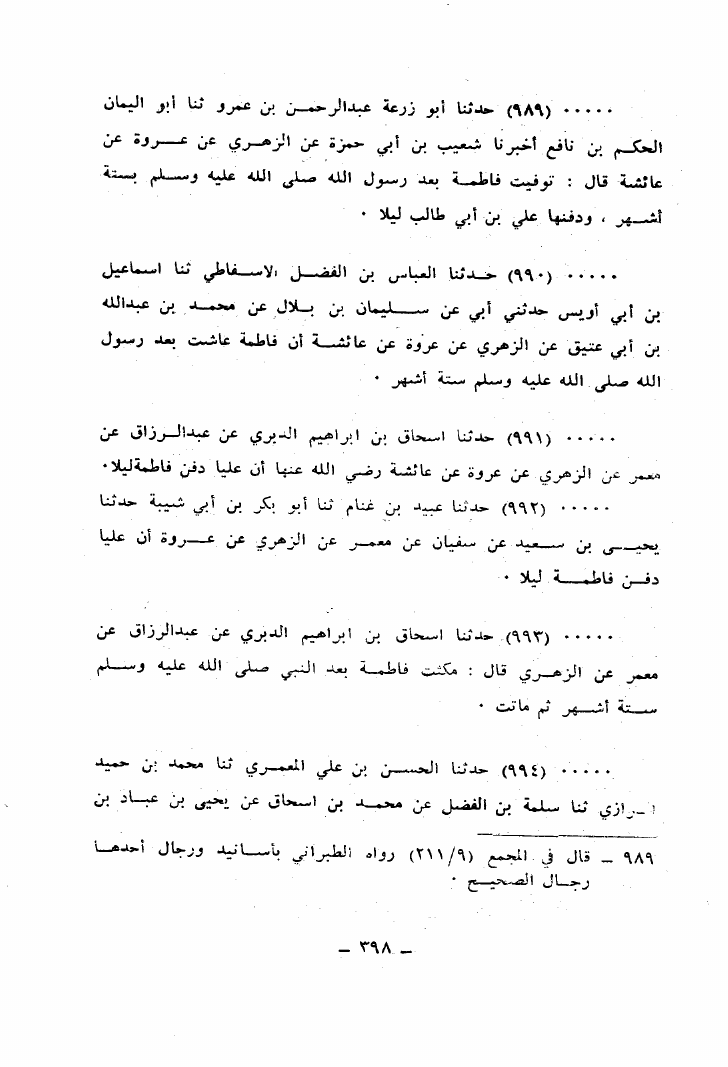 ٠٠٠٠٠ (٩٨٩) حدثنا أبو زرعة عبدالرحمن بن عمرو ثنا أبو اليمان
الحكم بن نافع أخبرنا شعيب بن أبي حمزة عن الزهري عن عروة عن
عائشة قال : توفيت فاطمة بعد رسول الله صلى الله عليه وسلم بستة
أشهر ، ودفنها علي بن أبي طالب ليلا ٠
٠٠٠٠٠ (٩٩٠) حدثنا العباس بن الفضل الاسفاطي ثنا اسماعيل
بن أبي أويس حدثني أبي عن سليمان بن بلال عن محمد بن عبدالله
بن أبي عتيق عن الزهري عن عروة عن عائشة أن فاطمة عاشت بعد رسول
الله صلى الله عليه وسلم ستة أشهر ٠
٠٠٠٠٠ (٩٩١) حدثنا اسحاق بن ابراهيم الدبري عن عبدالرزاق عن
معمر عن الزهري عن عروة عن عائشة رضي الله عنها أن عليا دفن فاطمةليلا٠
٠٠٠٠٠ (٩٩٢) حدثنا عبيد بن غنام ثنا أبو بكر بن أبي شيبة حدثنا
يحيى بن سعيد عن سفيان عن معمر عن الزهري عن عروة أن عليا
دفن فاطمة ليلا ٠
٠٠٠٠٠ (٩٩٣) حدثنا اسحاق بن ابراهيم الدبري عن عبدالرزاق عن
معمر عن الزهري قال : مكثت فاطمة بعد النبي صلى الله عليه وسلم
ستة أشهر ثم ماتت ٠
٠٠٠٠٠ (٩٩٤) حدثنا الحسن بن علي المعمري ثنا محمد بن حميد
الرازي ثنا سلمة بن الفضل عن محمد بن اسحاق عن يحيى بن عباد بن
٩٨٩ ــ قال في المجمع (٢١١/٩) رواه الطبراني بأسانيد ورجال أحدها
رجال الصحيح ٠
ــ ٣٩٨ ــ